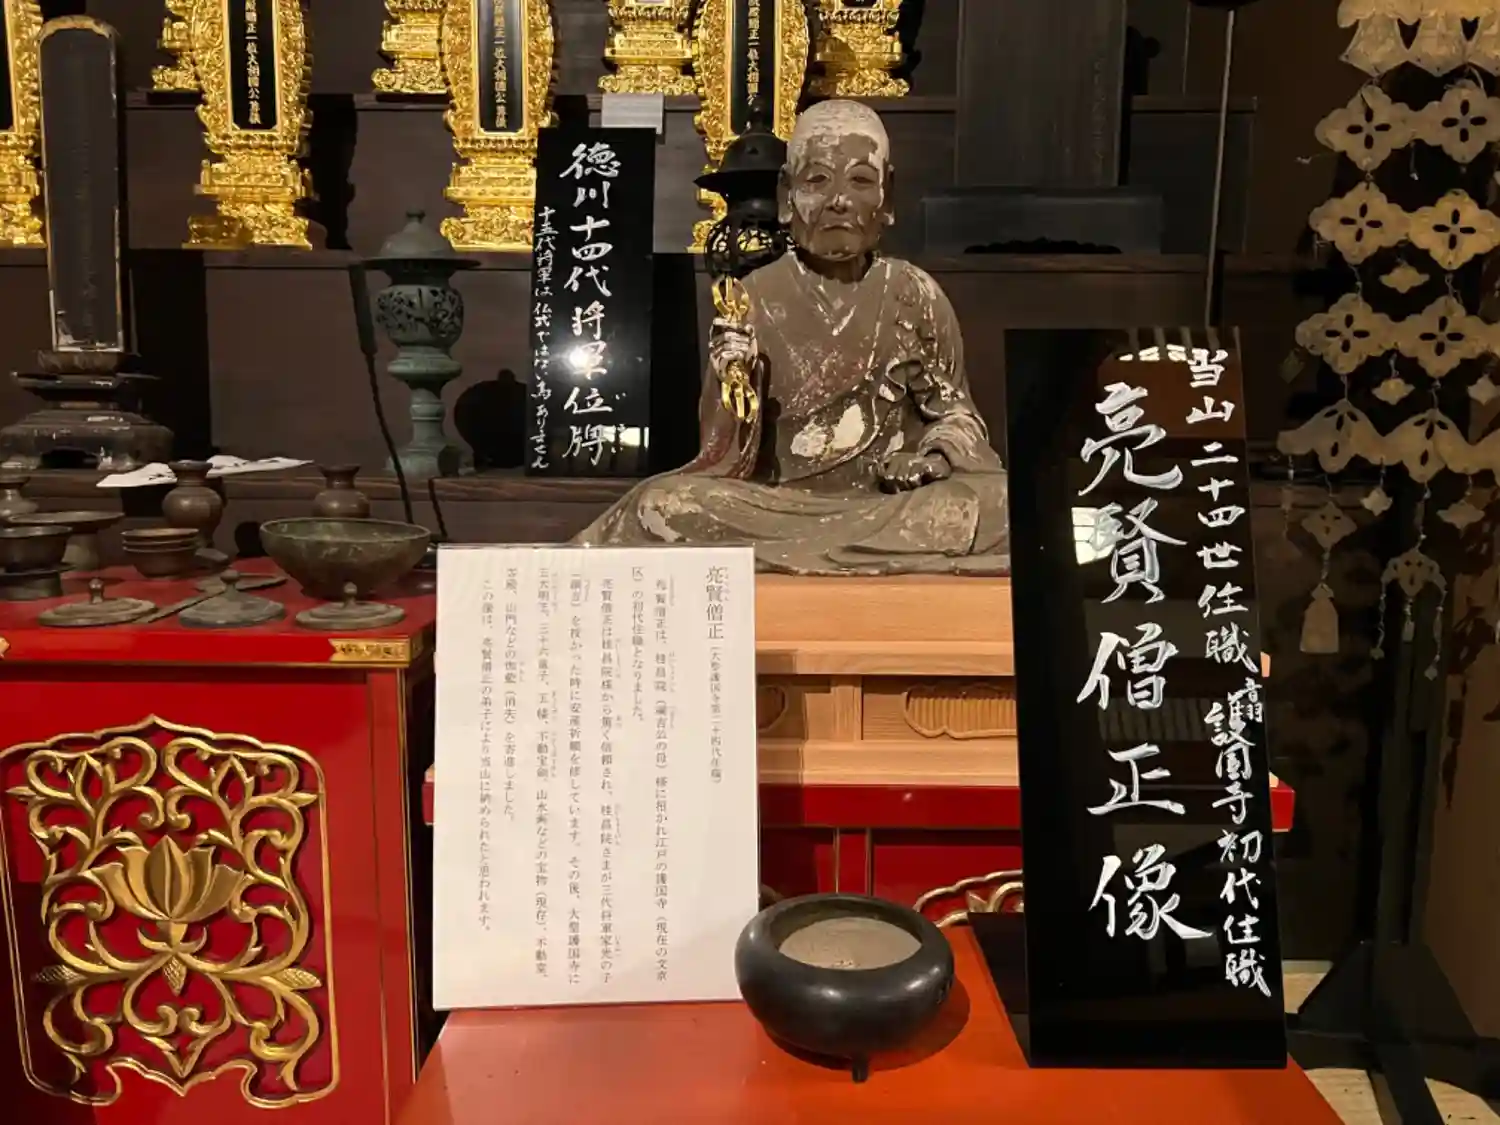 正一位大相國公尊儀
正一位大相國公尊儀
徳川十四代将軍位牌
いはい
十五代将軍は仏式ではありません
当山二十四世住職 音羽護国寺初代住職
亮賢僧正像
亮賢僧正（大聖護国寺第二十四代住職）
亮賢僧正は、桂昌院（綱吉公の母）様に招かれ江戸の護国寺（現在の文京
区）の初代住職となりました。
亮賢僧正は桂昌院様から篤く信頼され、桂昌院さまが三代将軍家光の子
（綱吉）を授かった時に安産祈願を修しています。その後、大聖護国寺に
五大明王、三十六童子、五鈷、不動宝剣、山水画などの宝物（現存）、不動堂、
客殿、山門などの伽藍（消失）を寄進しました。
この像は、亮賢僧正の弟子により当山に納められたと思われます。